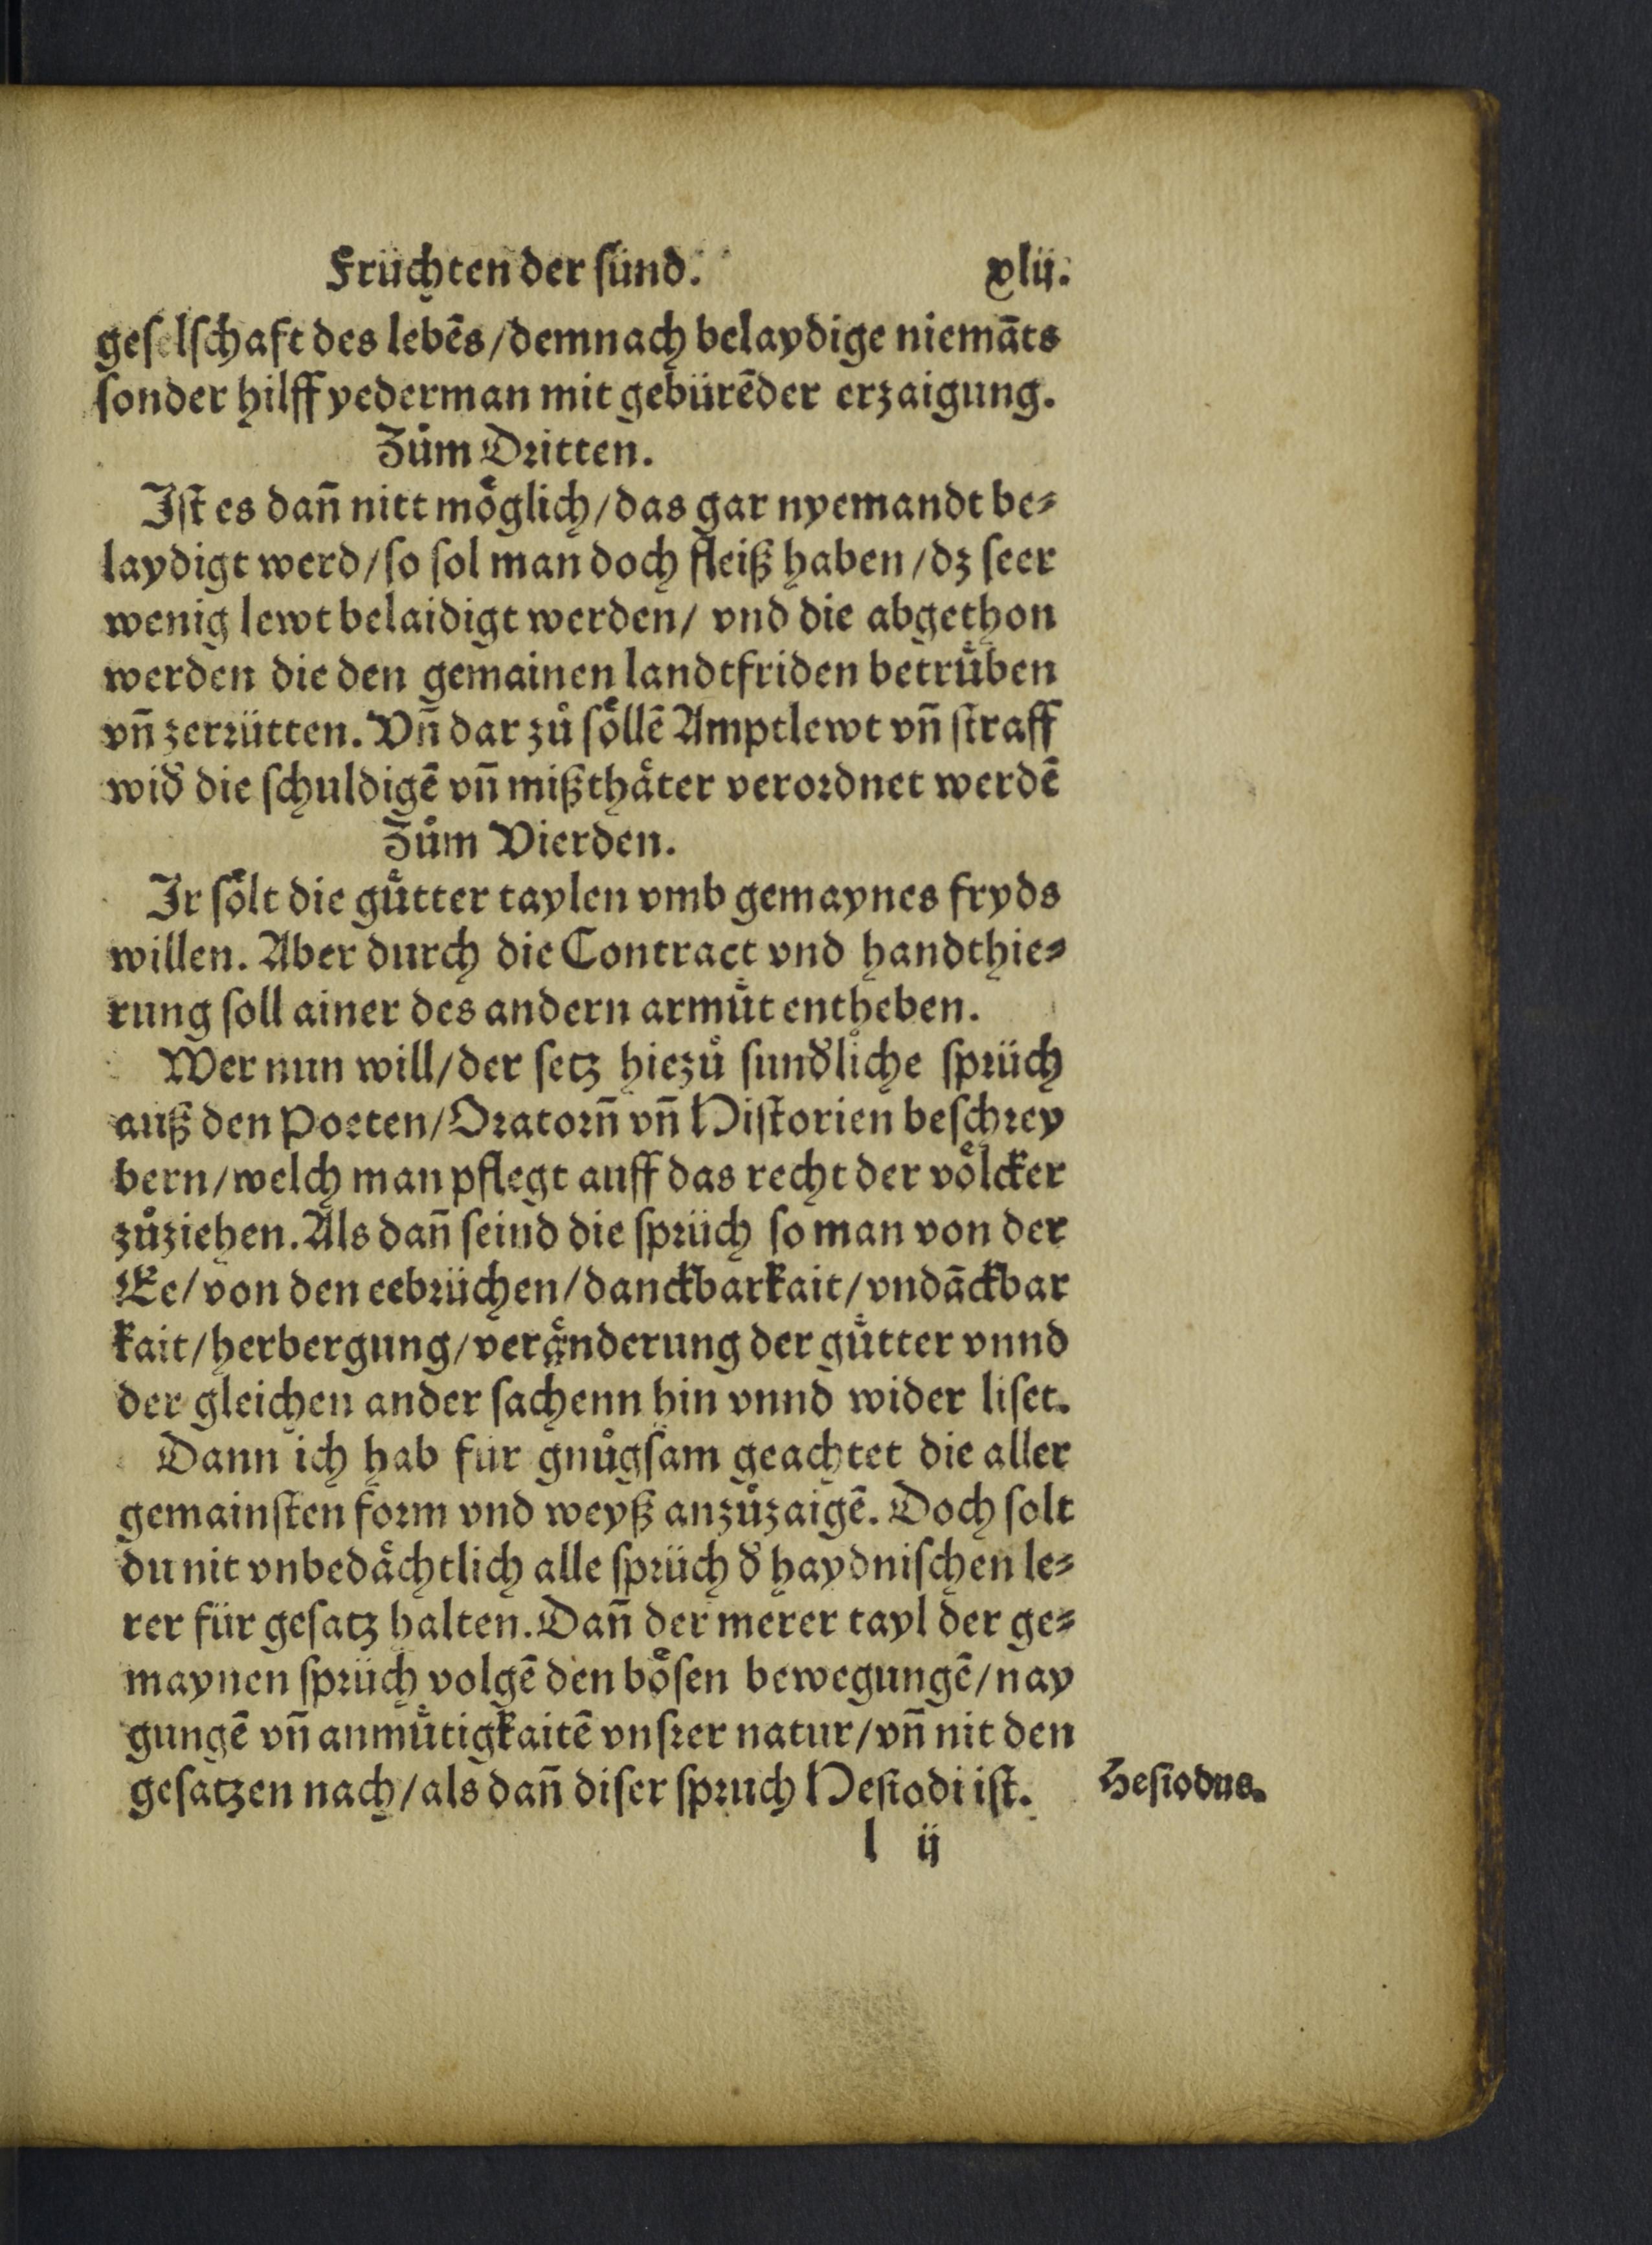 Früchten der ſünd. xlij.
geſelſchaft des lebēs/demnach belaydige niemāts
ſonder hilff yederman mit gebürēder erzaigung.
Zům Dritten.
Iſt es dañ nitt moͤglich/das gar nyemandt be⸗
laydigt werd/ſo ſol man doch fleiß haben/dz ſeer
wenig lewt belaidigt werden/ vnd die abgethon
werden die den gemainen landtfriden betruͤben
vñ zerrütten. Vñ dar zů ſoͤllē Amptlewt vñ ſtraff
wid̕ die ſchuldigē vñ mißthaͤter verordnet werdē
Zům Vierden.
Ir ſoͤlt die guͤtter taylen vmb gemaynes fryds
willen. Aber durch die Contract vnd handthie⸗
rung ſoll ainer des andern armuͤt entheben.
Wer nun will/der ſetz hiezů ſund̕liche ſprüch
auß den Poeten/Oratorñ vñ Hiſtorien beſchrey
bern/welch man pflegt auff das recht der voͤlcker
zůziehen. Als dañ ſeind die ſprüch ſo man von der
Ee/von den eebrüchen/danckbarkait/vndāckbar
kait/herbergung/veraͤnderung der guͤtter vnnd
der gleichen ander ſachenn hin vnnd wider liſet.
Dann ich hab für gnůgſam geachtet die aller
gemainſten form vnd weyß anzůzaigē. Doch ſolt
du nit vnbedaͤchtlich alle ſprüch d̕ haydniſchen le⸗
rer für geſatz halten. Dañ der merer tayl der ge⸗
maynen ſprüch volgē den boͤſen bewegungē/nay
gungē vñ anmuͤtigkaitē vnſrer natur/vñ nit den
geſatzen nach/als dañ diſer ſpruch Heſiodi iſt.
Heſiodus.
l ij